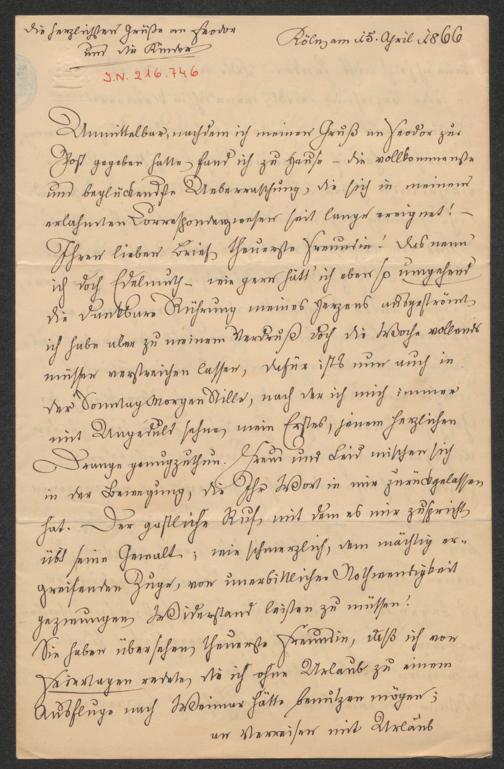 Die herzlichsten Grüße an Feodor
und die Kinder
Köln, am 15. April 1866
I.N. 216.746
Unmittelbar, nachdem ich meinen Gruß an Feodor zur
Post gegeben hatte, fand ich zu Hause – die vollkommenste
und beglückendste Ueberraschung, die sich in meinem
erlahmten Correspondenzwesen seit lange ereignet! –
Ihren lieben Brief, theuerste Freundin! Das nenn'
ich doch Edelmuth – wie gern hätt' ich eben so umgehend
die dankbare Rührung meines Herzens ausgeströmt,
ich habe aber zu meinem Verdruß doch die Woche vollends
müssen verstreichen lassen, dafür ist's nun auch in
der Sonntag Morgen Stille, nach der ich mich immer
mit Ungeduld sehne, mein Erstes, jenem herzlichen
Drange genugzuthun. Freud und Leid mischen sich
in der Bewegung, die Ihr Wort in mir zurückgelassen
hat. – Der gastliche Ruf, mit dem es mir zuspricht,
übt seine Gewalt; wie schmerzlich, dem mächtig er-
greifenden Zuge, von unerbittlicher Nothwendigkeit
gezwungen, Widerstand leisten zu müssen!
Sie haben übersehen, theuerste Freundin, daß ich von
Feiertagen redete, die ich ohne Urlaub zu einem
Ausfluge nach Weimar hätte benutzen mögen;
an Verreisen mit Urlaub